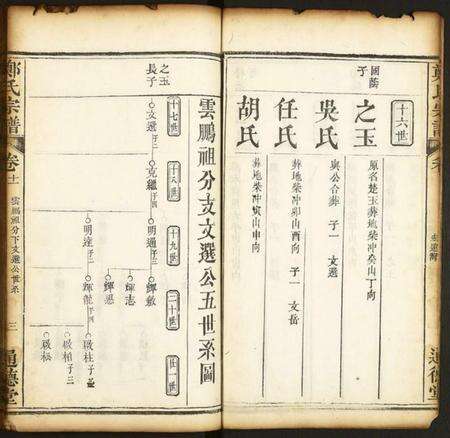 十六世
國蔭
子
之玉 原名楚玉葬地柴冲癸山丁向
吳氏 與公合葬 子一 文選
任氏 葬地柴冲卯山酉向 子一 文岳
胡氏 葬地柴冲寅山申向
通德堂
鄭氏宗譜
卷十
雲鵬祖分下文選公世系
三
通德堂
雲鵬祖分支文選公五世系圖
十七世
十八世
十九世
二十世
廿一世
之玉
長子
文選子二
克繼子四
明通子三
輝敏
輝志
輝恩
明達子二
輝龍子四
啟柱子
啟相子三
啟松